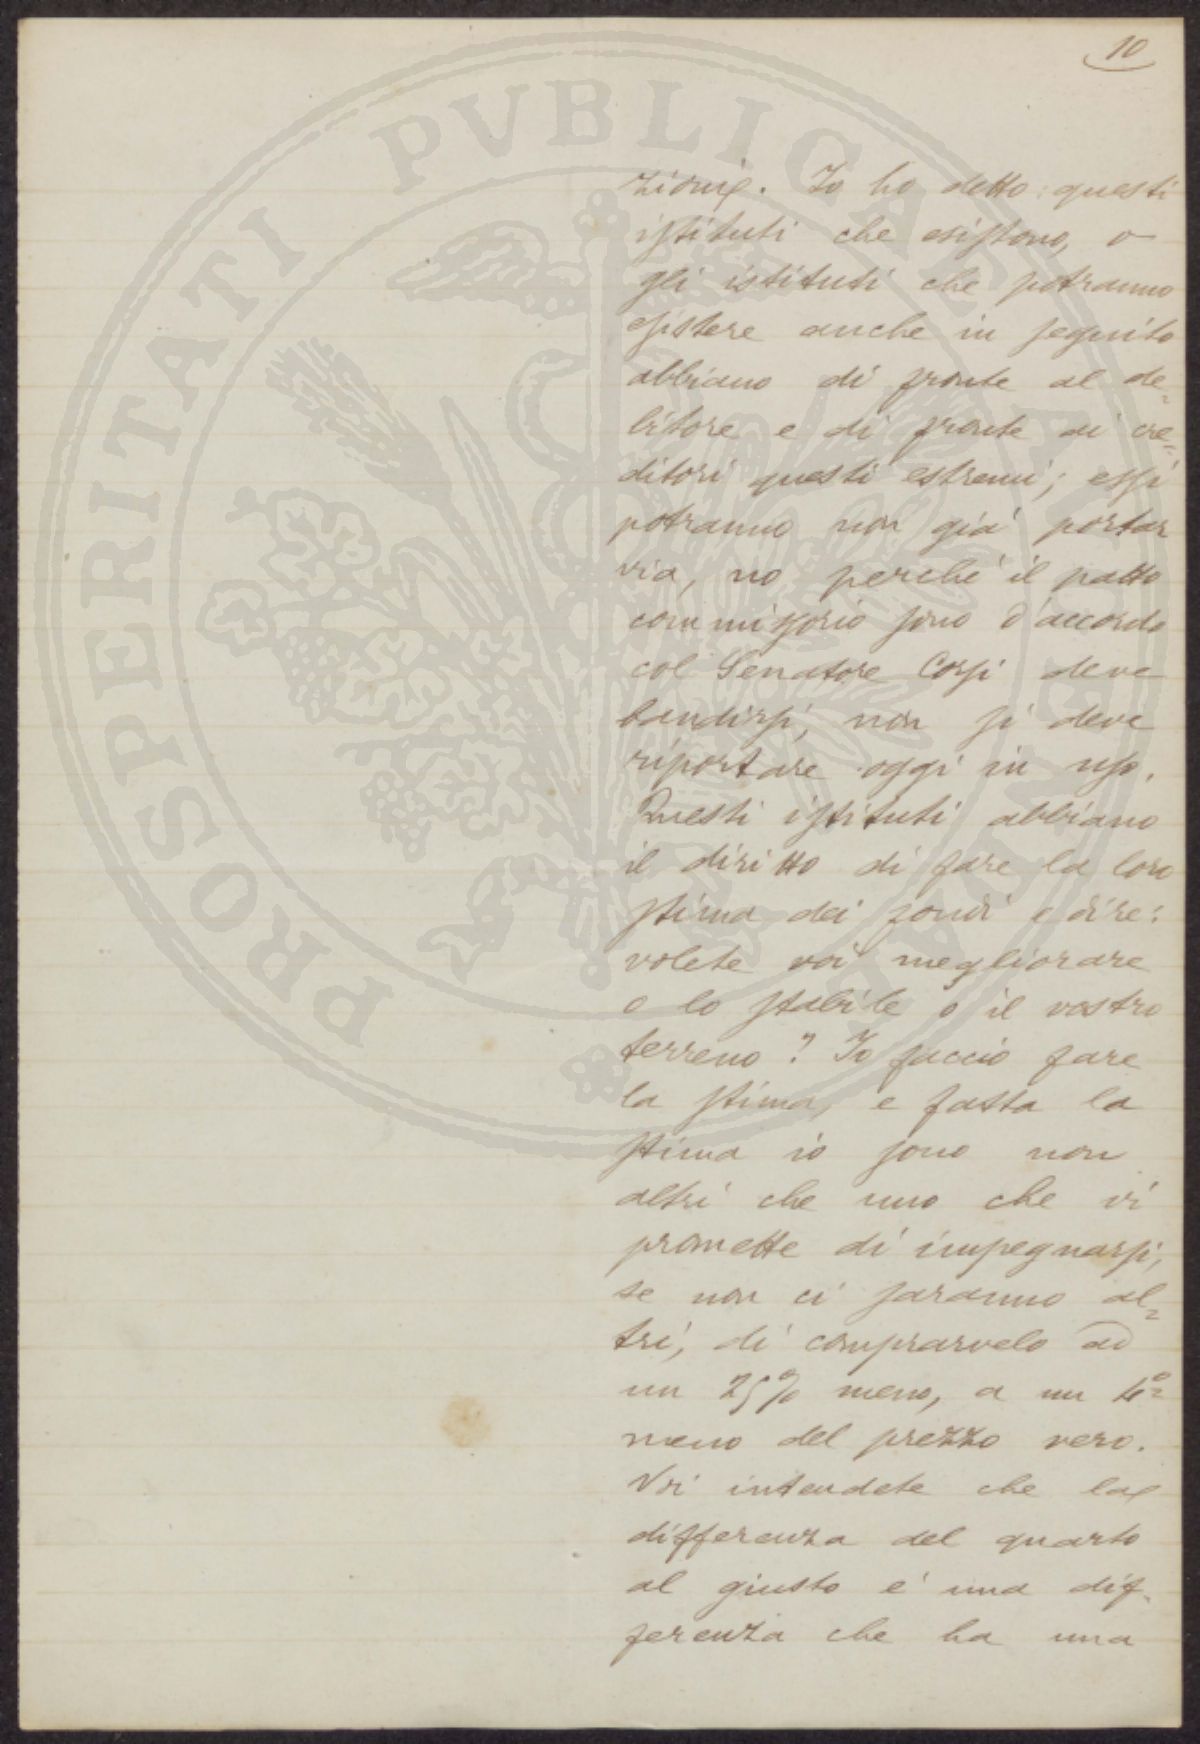 10
zione. Io ho detto: questi
istituti che esistono, o
gli istituti che potranno
esistere anche in seguito
abbiano di fronte al de=
bitore e di fronte ai cre=
ditori questi estremi; essi
potranno non già portar
via, no perché il patto
commissorio sono d'accordo
col Senatore Corsi deve
bandirsi, non si deve
riportare oggi in uso.
Questi istituti abbiano
il diritto di fare la loro
stima dei fondi e dire:
volete voi megliorare
o lo stabile o il vostro
terreno? Io faccio fare
la stima, e fatta la
stima io sono non
altri che uno che vi
promette di impegnarsi,
se non ci saranno al=
tri, di comprarvelo ad
un 25% meno, a un
meno del prezzo vero.
Voi intendete che la
differenza del quarto
al giusto é una dif=
ferenza che ha una
PROSPERITATI PVBLICAE